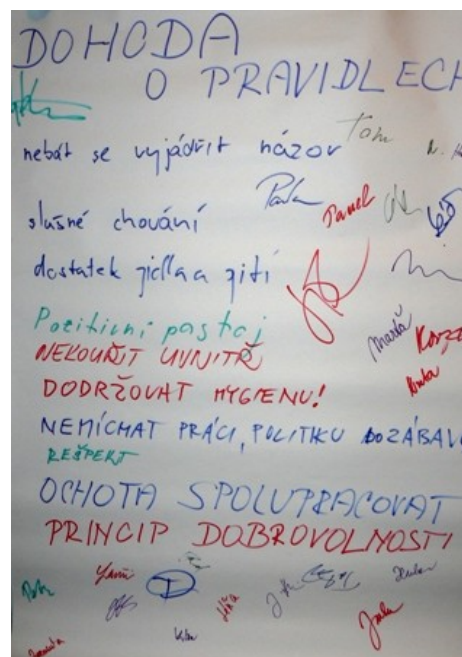 DOHODA
O PRAVIDLECH
nebát se vyjádřit názor
Tom
Pavel
slušné chování
dostatek jídla a pití
Pozitivní pastoj
Martä
NEKOUŘIT UVNITŘ
DODRŽOVAT HYGIENU!
NEMÍCHAT PRÁCI, POLITIKU DO ZÁBAV
REŠPEKT
OCHOTA SPOLUPRACOVAT
PRINCIP DOBROVOLNOSTI